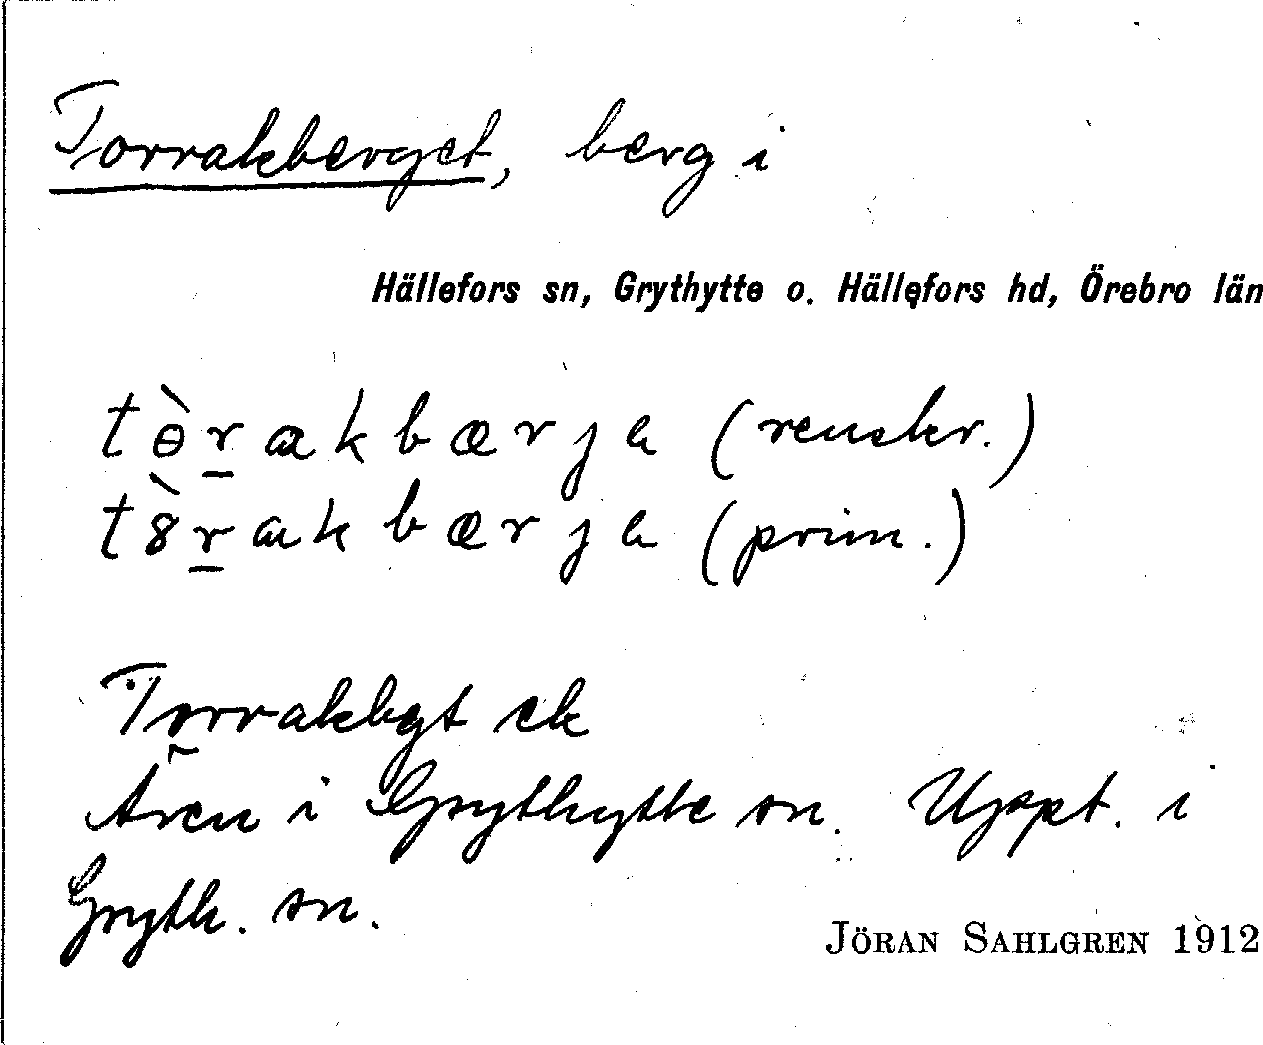 Torrakberget, berg i
Hällefors sn, Grythytte o. Hällefors hd, Örebro län
tɵ̀r̲akbærja (renskr.)
t8̀r̲akbærja (prim.)
Torrakbgt ek
Även i Grythytte sn. Uppt. i
Gryth. sn.
JÖRAN SAHLGREN 1912